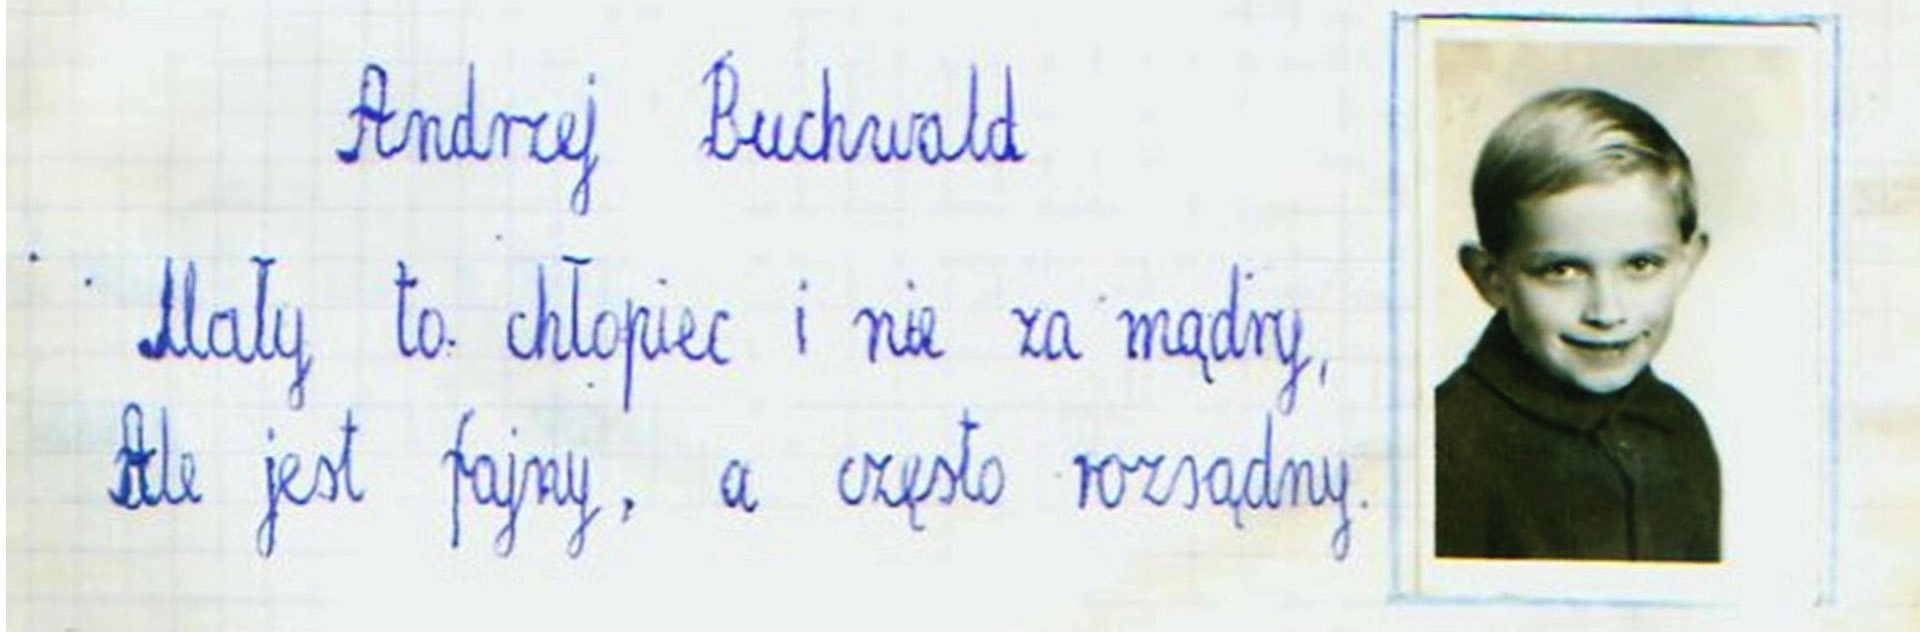 Andrzej Buchwald
Mały to chłopiec i nie za mądry,
Ale jest fajny, a często rozsądny.